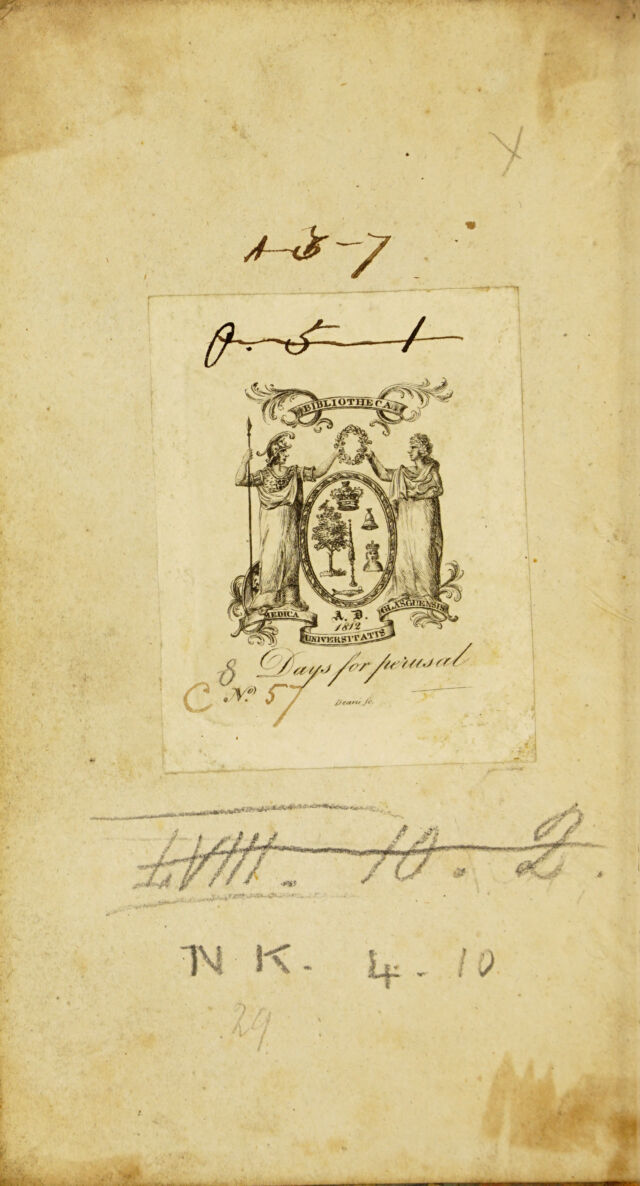 A-8-7
P. 5 1
BIBLIOTHECA
MEDICA
A. D.
1812
GLASGUENSIS
UNIVERSITATIS
8 Days for perusal
C No. 57
LVIII. 10. 2.
N K. 4. 10
29